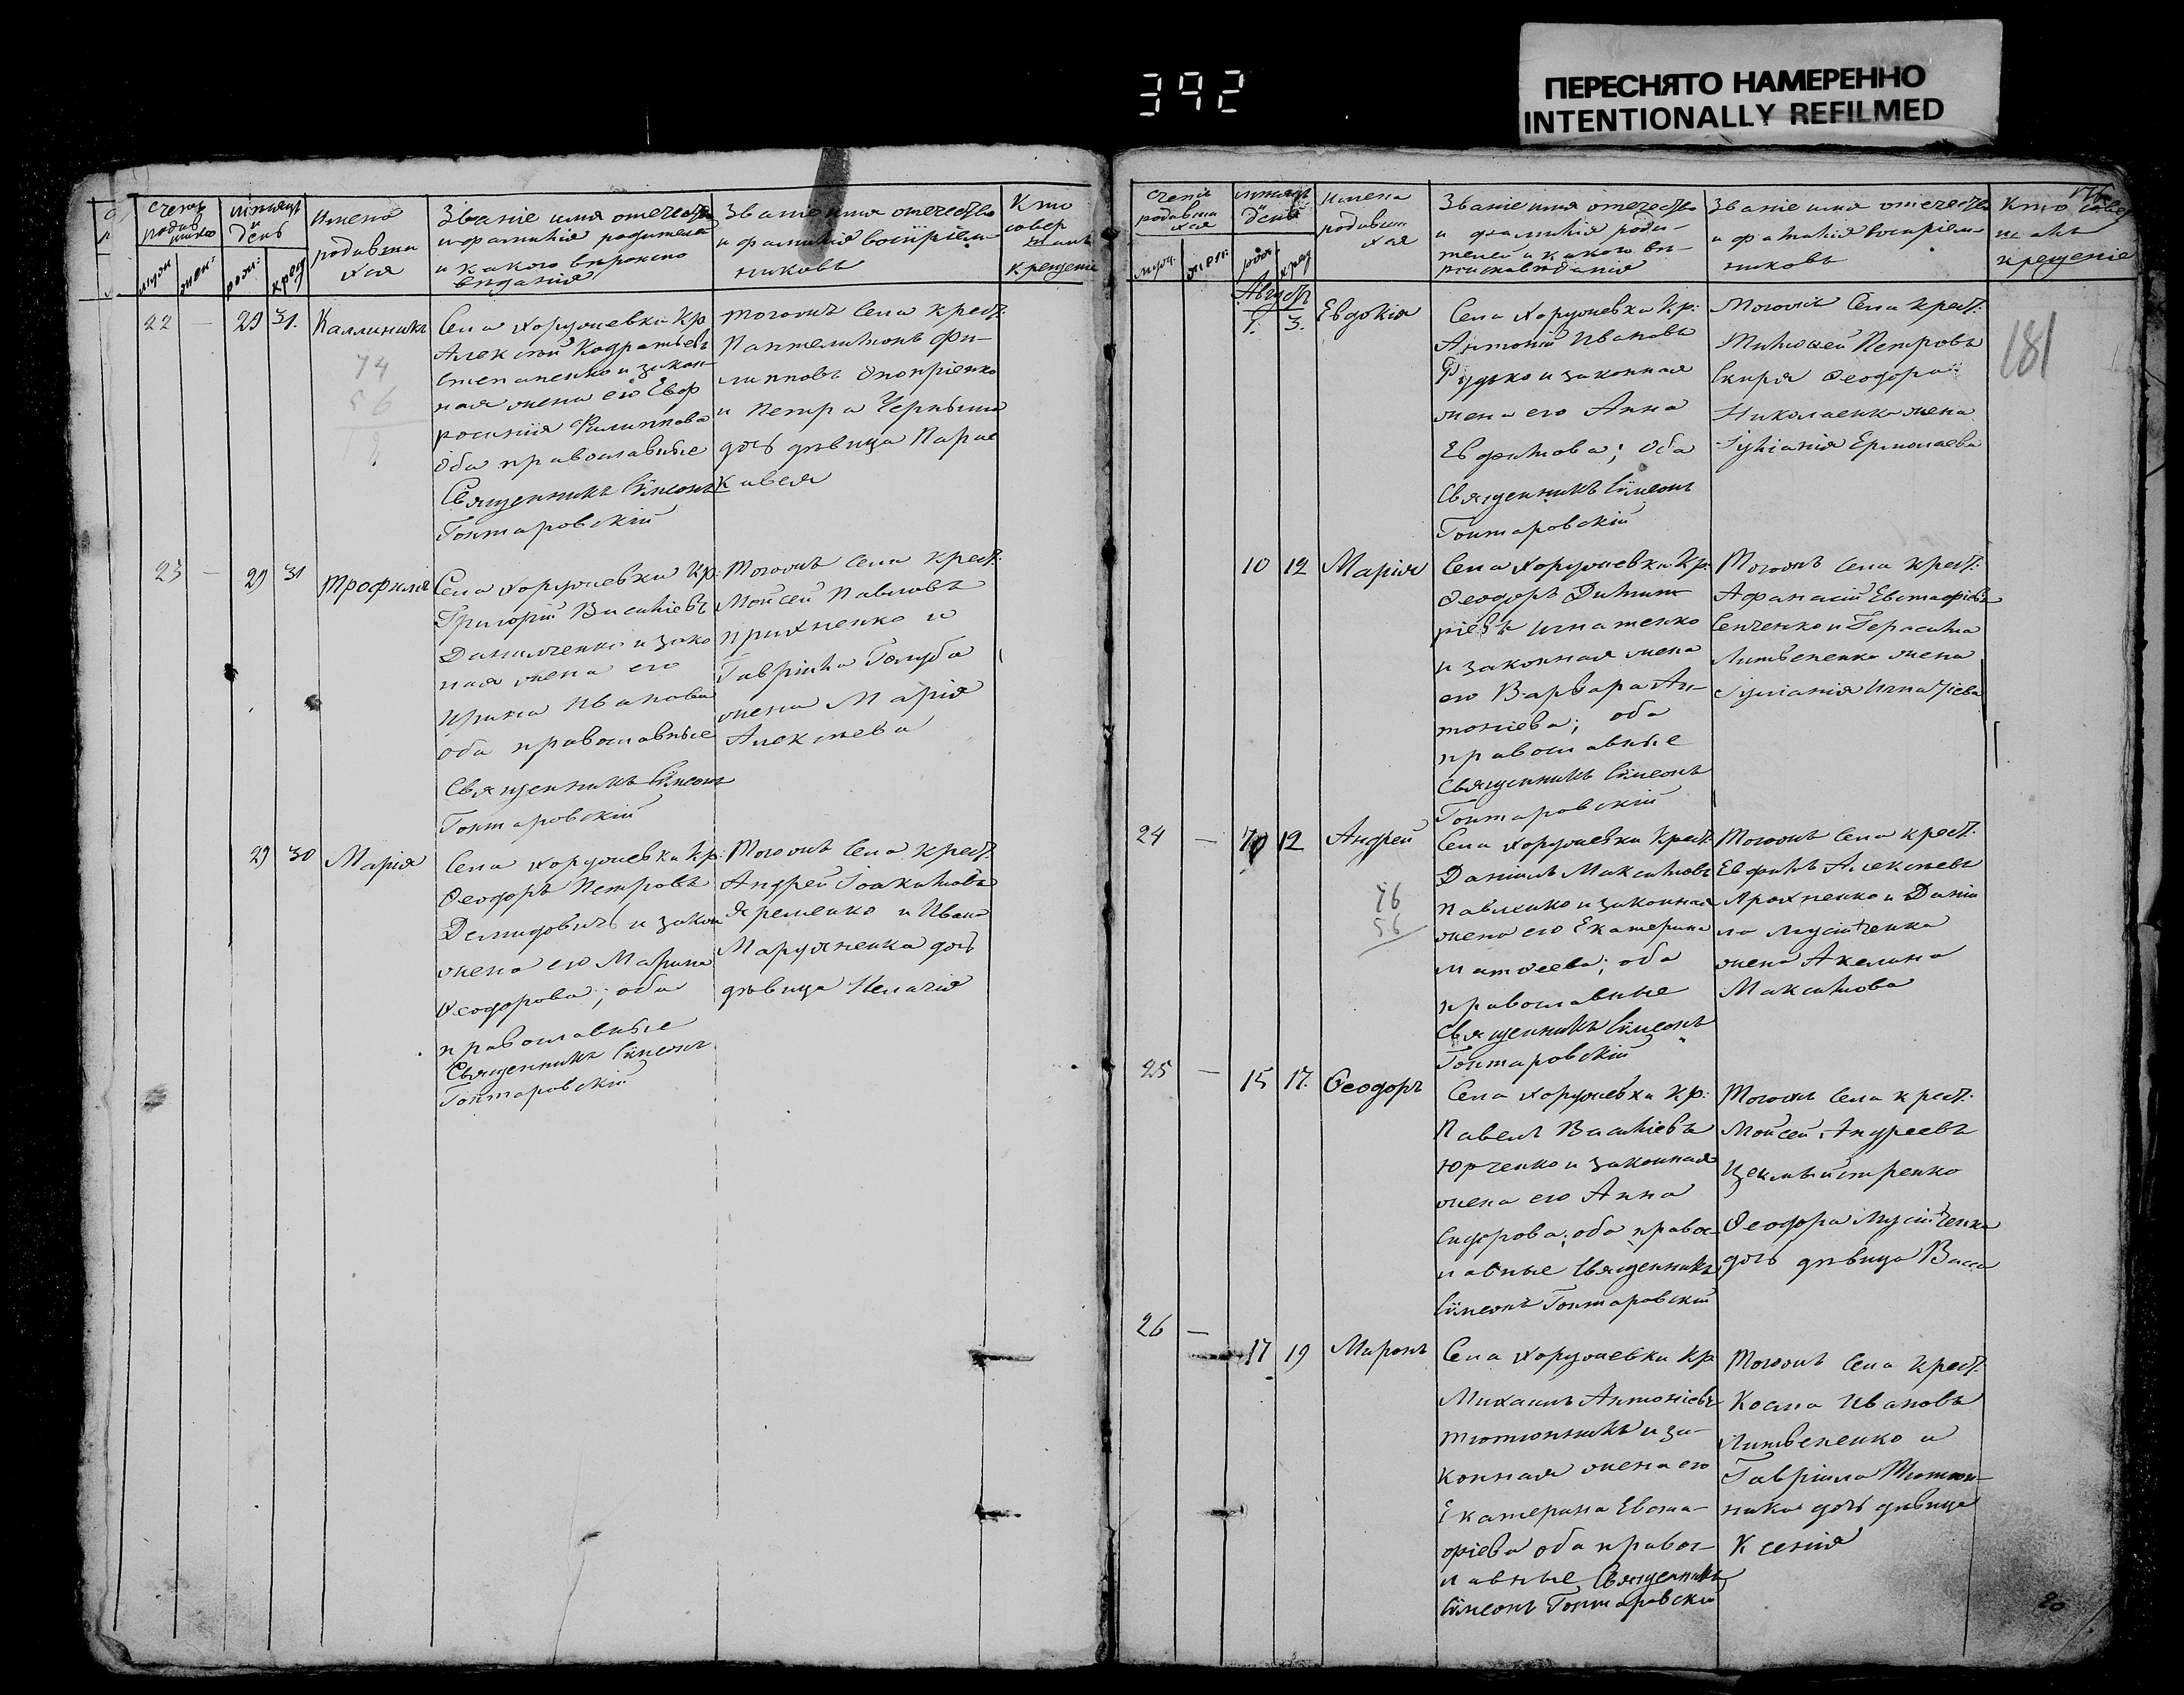 392
ПЕРЕСНЯТО НАМЕРЕННО
INTENTIONALLY REFILMED
Счетъ родившихся
муж
жен:
мѣсяцъ и день
рож:
крещ
Имена
родивши
хся
Званіе имя отечество
и фамилія родителей
и какого вѣроиспо
вѣданія
Званіе имя отечество
и фамилія воспріем-
никовъ
Кто
совер
шалъ
крещеніе
22 — 29 31. Каллиникъ
Села Хоружевки Кр
Алексѣй Кодратьевъ
Степаненко и закон-
ная жена его Евф
росинія Филиппова
оба православные
Священникъ Симеонъ
Гонтаровскій
тогожъ села крест.
Пантелимонъ Фи-
липповъ Онопріенко
и Петра Черныша
дочь дѣвица Парас
кивея
74
56
23 — 29 31 Трофимъ
Села Хоружевки Кр:
Григорій Василіевъ
Данильченко и зако
ная жена его
Ирина Иванова
оба православные
Священникъ Симеонъ
Гонтаровскій
Тогожъ села крест.
Мойсей Павловъ
Прихненко и
Гавріила Голуба
жена Марія
Алексѣева
29 30 Марія
Села Хоружевки Кр:
Феодоръ Петровъ
Демидовичъ и закон
жена его Марина
Феодорова; оба
православные
Священникъ Симеонъ
Гонтаровскій
Тогожъ села крест.
Андрей Іоакимовъ
Яременко и Ивана
Маруженка дочь
дѣвица Пелагія
Счетъ
родивши
хся
муж.
жен:
мѣсяцъ
и
день
рож
крещ
имена
родивши
хся
Званіе имя отечество
и фамилія роди-
телей и какого вѣ-
роисповѣданія
Званіе имя отечество
и фамилія воспріем-
никовъ
Кто совер
шалъ
крещеніе
181
Августъ
1. 3. Евдокія
Села Хоружевки Кр:
Антоній Ивановъ
Рудько и законная
жена его Анна
Евфимова; оба
Священникъ Симеонъ
Гонтаровскій
Тогожъ села крест.
Тимофей Петровъ
Скиря Феодора
Николаенка жена
Іуліанія Ермолаева
10 12 Марія
Села Хоружевки Кр:
Феодоръ Димит
ріевъ Игнатенко
и законная жена
его Варвара Ан-
тоніева; оба
православные
Священникъ Симеонъ
Гонтаровскій
Тогожъ села крест.
Афанасій Евстафіевъ
Сенченко и Герасима
Литвененка жена
Іуліанія Игнатіева
24 — 10 12 Андрей
Села Хоружевки Крест.
Даніилъ Максимовъ
Павленко и законная
жена его Екатерина
Матфеева; оба
православные
Священникъ Симеонъ
Гонтаровскій
Тогожъ села крест.
Евфимъ Алексѣевъ
Ярохненко и Даніи
ла Мусіченка
жена Акелина
Максимова
76
56
25 — 15 17. Феодоръ
Села Хоружевки Кр:
Павелъ Василіевъ
Юрченко и законная
жена его Анна
Сидорова; оба правос-
лавные Священникъ
Симеонъ Гонтаровскій
Тогожъ села крест.
Мойсей Андреевъ
Феодора Мусіченка
дочь дѣвица Васса
26 — 17 19 Миронъ
Села Хоружевки Кр
Михаилъ Антоніевъ
Тютюнникъ и за-
конная жена его
Екатерина Евста-
фіева оба правос-
лавные Священникъ
Симеонъ Гонтаровскій
Тогожъ села Крест.
Косма Ивановъ
Литвененко и
Гавріила Тютюн-
ника дочь дѣвица
Ксенія
20